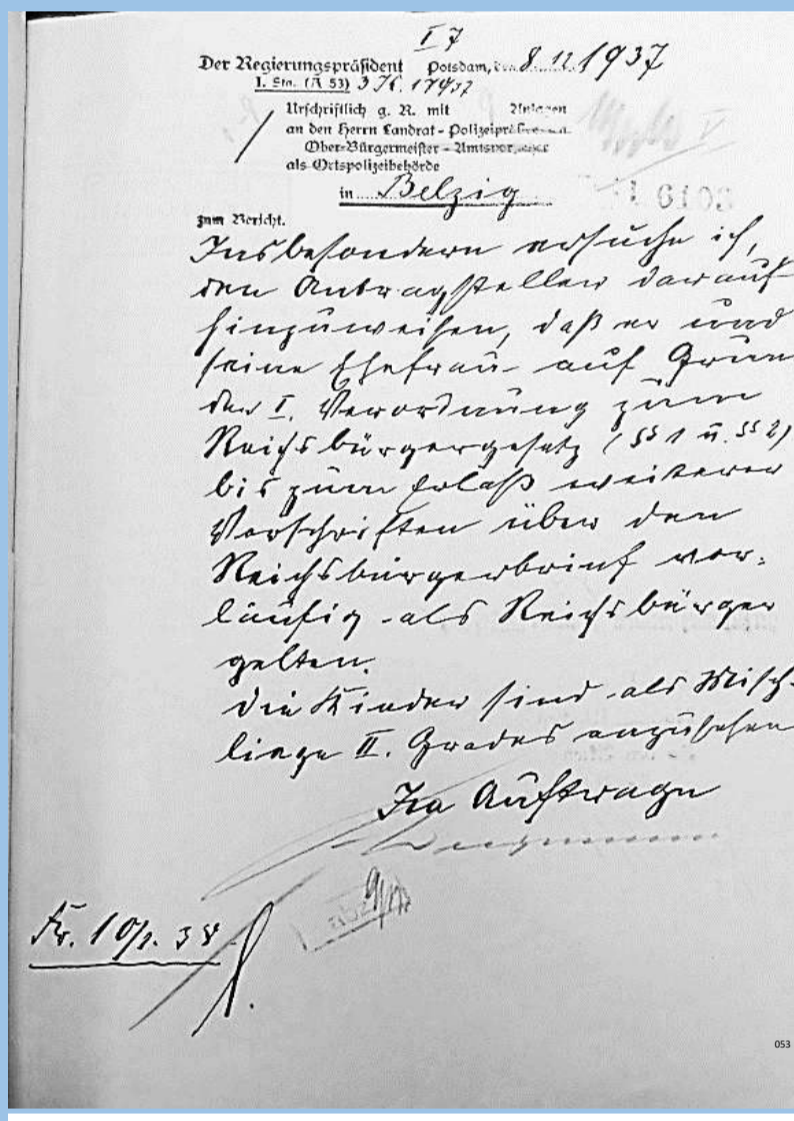 I 7
Der Regierungspräsident Potsdam, den 8. 12. 1937
I. Sta. (A 53)
Urschriftlich g. R. mit Anlagen
an den Herrn Landrat - Polizeipräsidenten
Ober-Bürgermeister - Amtsvorsteher
als Ortspolizeibehörde
in Belzig
zum Bericht.
Insbesondere ersuche ich,
den Antragsteller darauf
hinzuweisen, daß er und
seine Ehefrau auf Grun
der I. Verordnung zum
Reichsbürgergesetz (§§ 1 u. §§ 2)
bis zum Erlaß weiterer
Vorschriften über den
Reichsbürgerbrief vor-
läufig als Reichsbürger
gelten.
Die Kinder sind als Misch-
linge II. Grades anzusehen
Im Auftrage
Fr. 10/2. 38
053